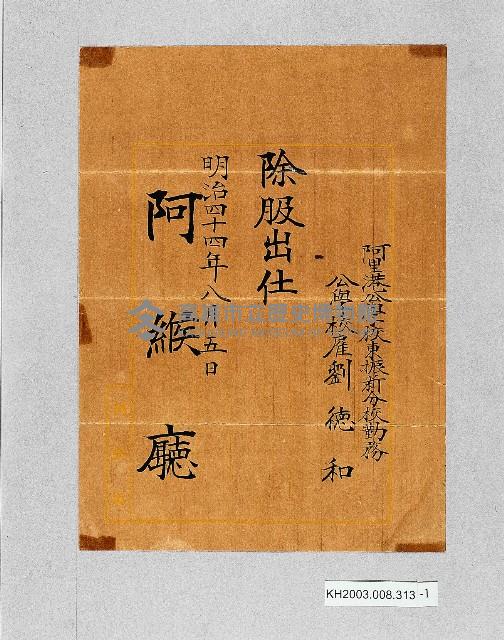 阿里港公學校東振新分校勤務
公學校雇劉德和
除服出仕
明治四十四年八月十五日
阿緱廳
高雄市立歷史博物館
KH2003.008.313-1